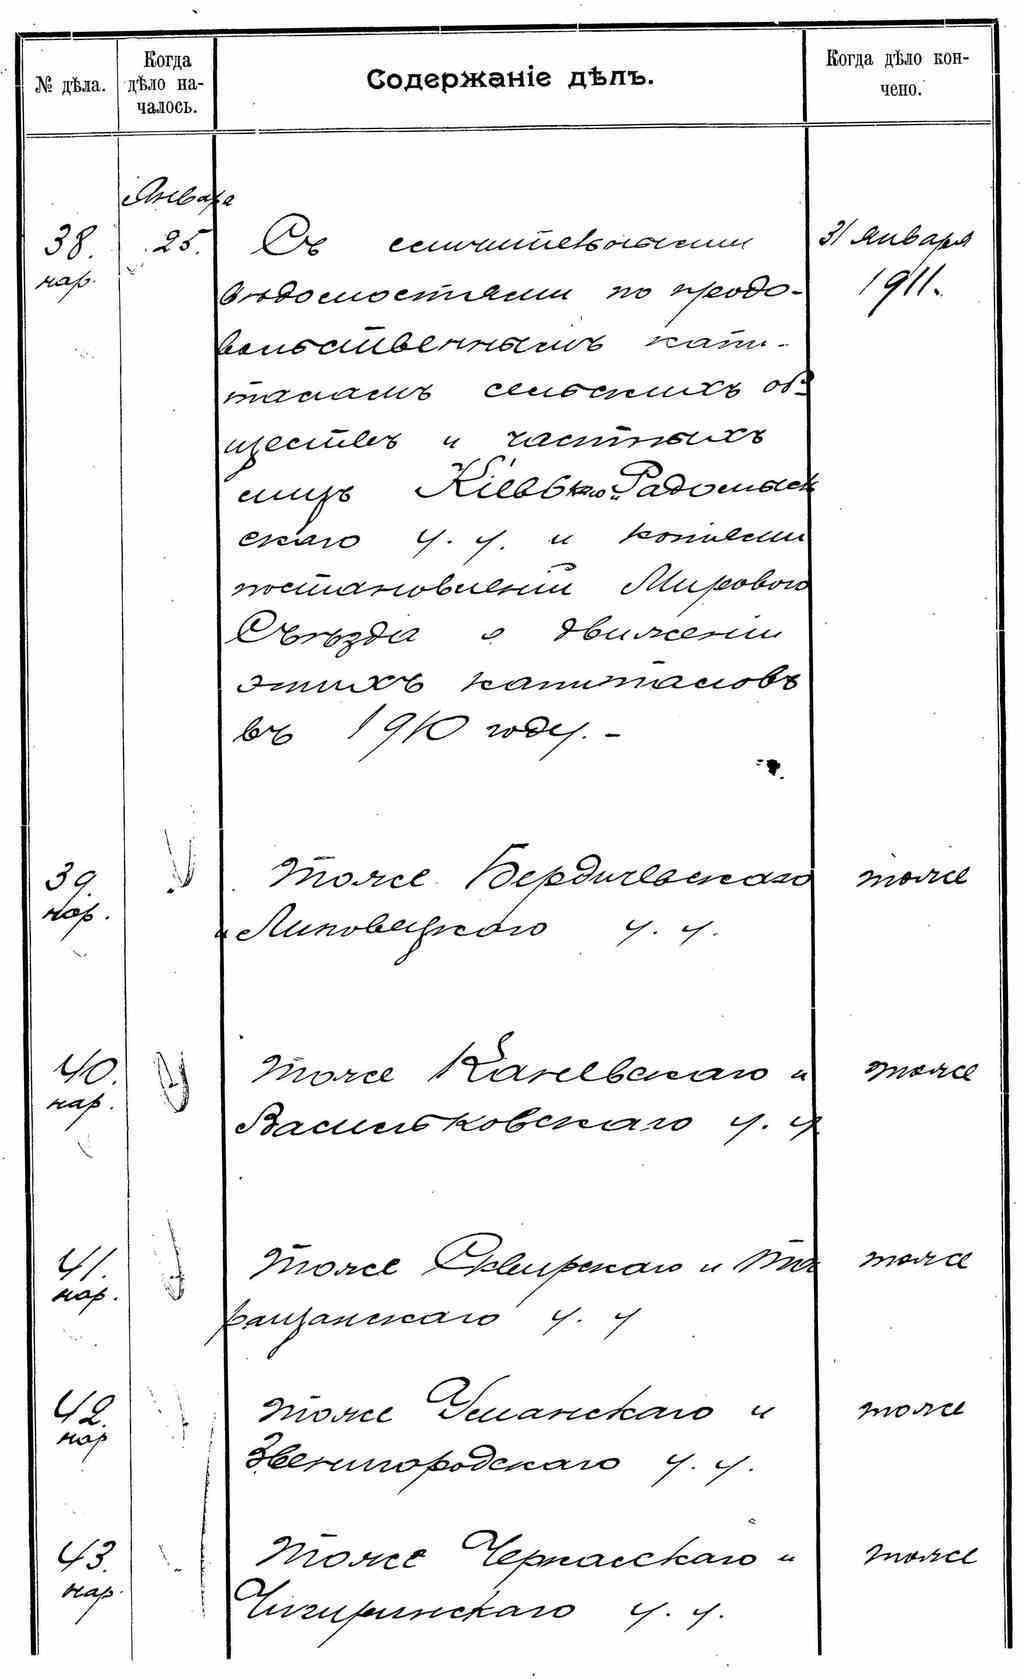 № дѣла.
Когда
дѣло на-
чалось.
Содержаніе дѣлъ.
Когда дѣло кон-
чено.
Января
38.
нар.
25.
Съ сличительными
вѣдомостями по продо-
вольственнымъ капи-
таламъ сельскихъ об-
ществъ и частныхъ
лицъ Кіевскаго и Радомысль
скаго у. у. и копіями
постановленій Мирового
Съѣзда о движеніи
этихъ капиталовъ
въ 1910 году. -
31 января
1911.
39.
нар.
тоже Бердичевскаго
и Липовецкаго у. у.
тоже
40.
нар.
тоже Каневскаго и
Васильковскаго у. у.
тоже
41.
нар.
тоже Сквирскаго и Та
ращанскаго у. у
тоже
42.
нар
тоже Уманскаго и
Звенигородскаго у. у.
тоже
43.
нар.
тоже Черкасскаго и
Чигиринскаго у. у.
тоже